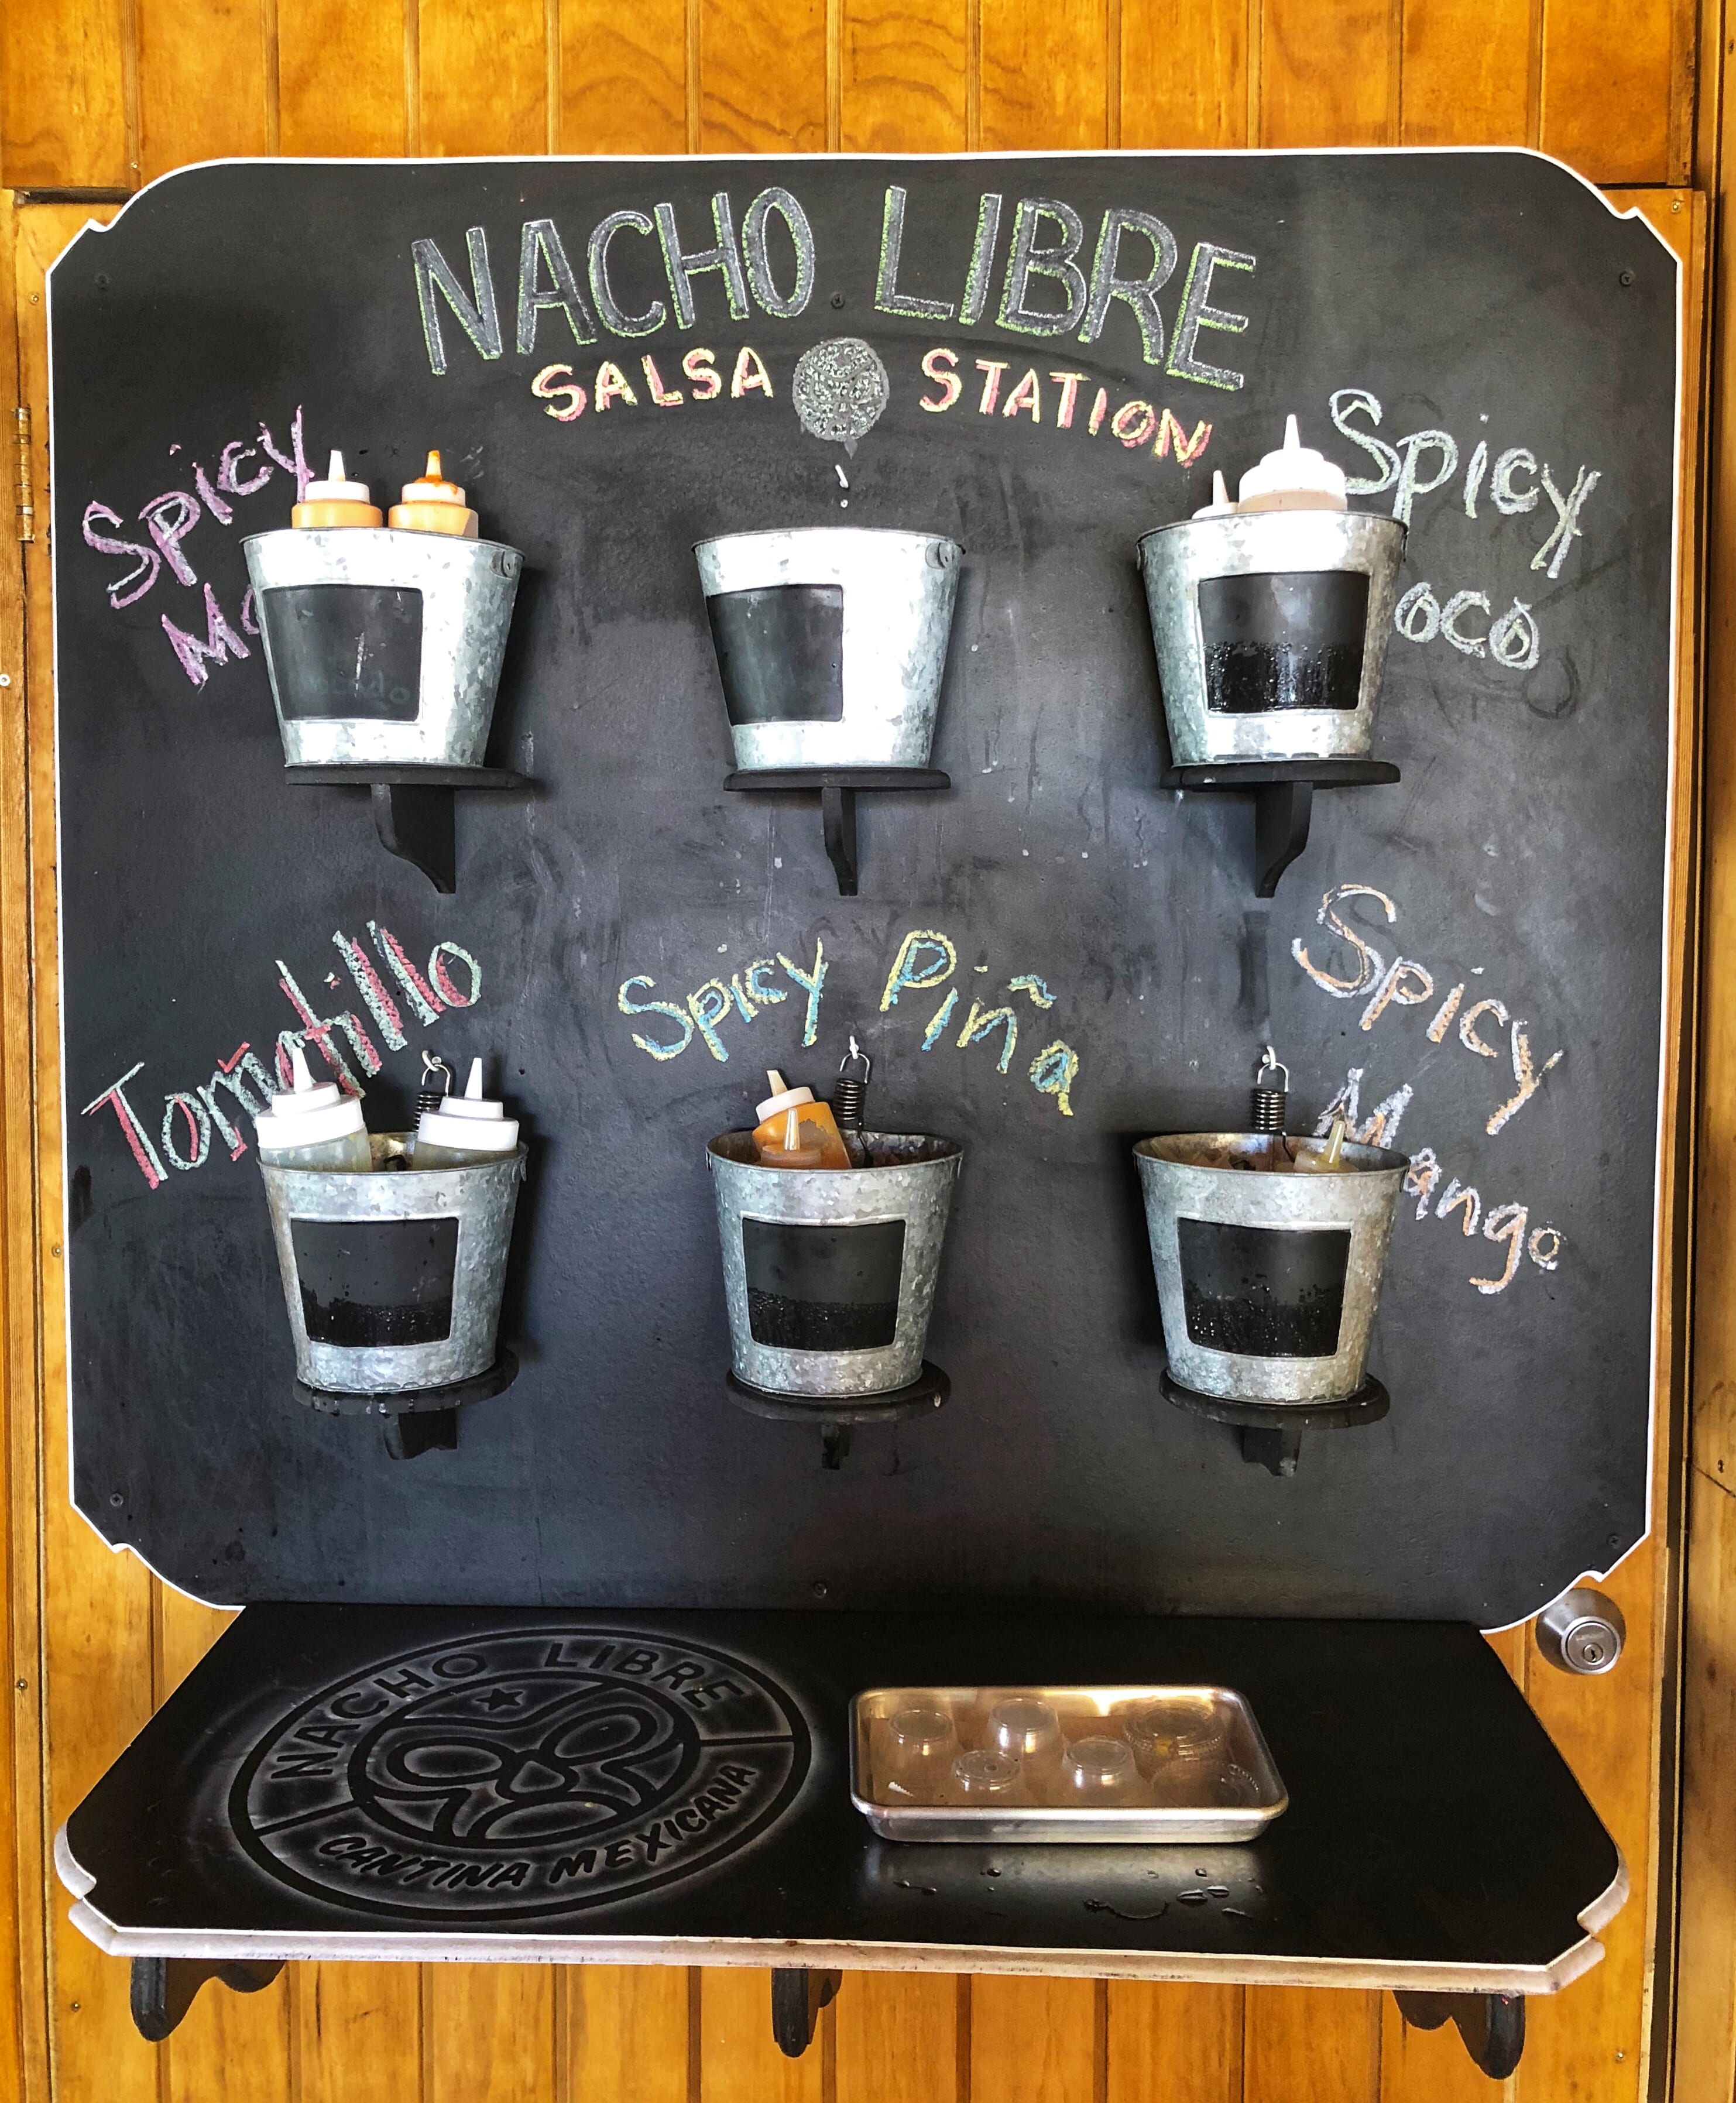 NACHO LIBRE
SALSA STATION
Spicy
Spicy
oco
Tomatillo
Spicy Piña
Spicy
Mango
NACHO LIBRE
CANTINA MEXICANA